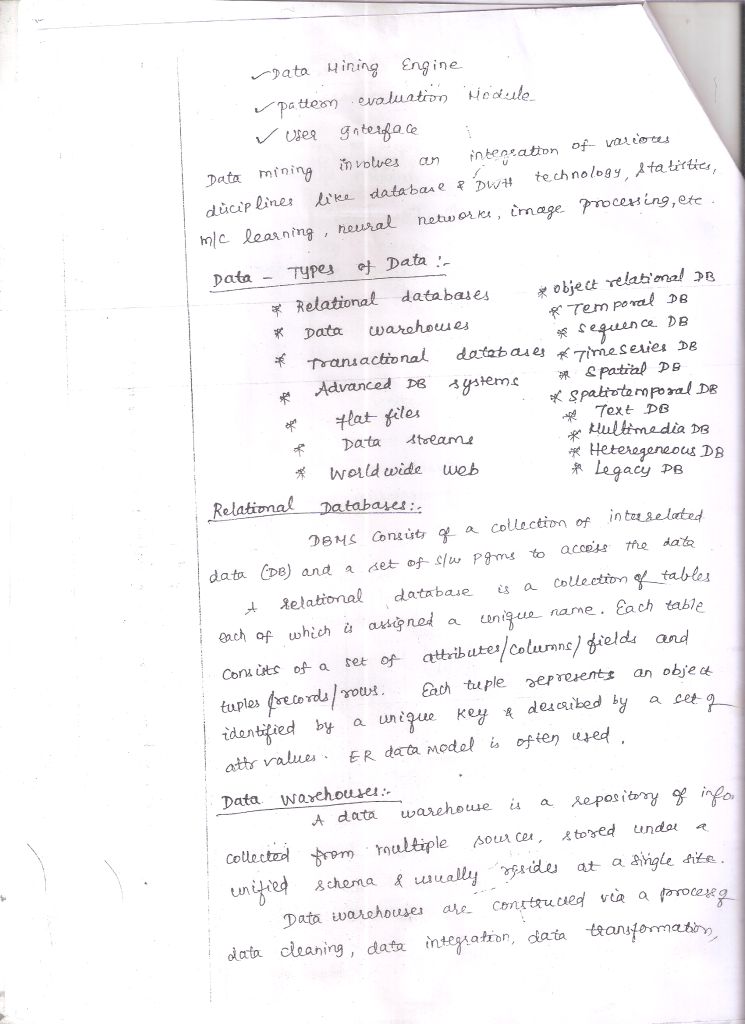 ✓ Data Mining Engine
✓ pattern evaluation Module
✓ User Interface
Data mining involves an integration of various
disciplines like database & DWH technology, statistics,
m/c learning, neural networks, image processing, etc.
Data - Types of Data :-
* Relational databases
* Data warehouses
* Transactional databases
* Advanced DB systems
* Flat files
* Data streams
* World wide web
* Object relational DB
* Temporal DB
* Sequence DB
* Timeseries DB
* Spatial DB
* Spatiotemporal DB
* Text DB
* Multimedia DB
* Heteregeneous DB
* Legacy DB
Relational Databases:-
DBMS consists of a collection of interrelated
data (DB) and a set of s/w pgms to access the data
A relational database is a collection of tables
each of which is assigned a unique name. Each table
consists of a set of attributes/columns/fields and
tuples/records/rows. Each tuple represents an object
identified by a unique key & described by a set of
attr values. ER data model is often used.
Data Warehouses:-
A data warehouse is a repository of info
collected from multiple sources, stored under a
unified schema & usually resides at a single site.
Data warehouses are constructed via a process of
data cleaning, data integration, data transformation,